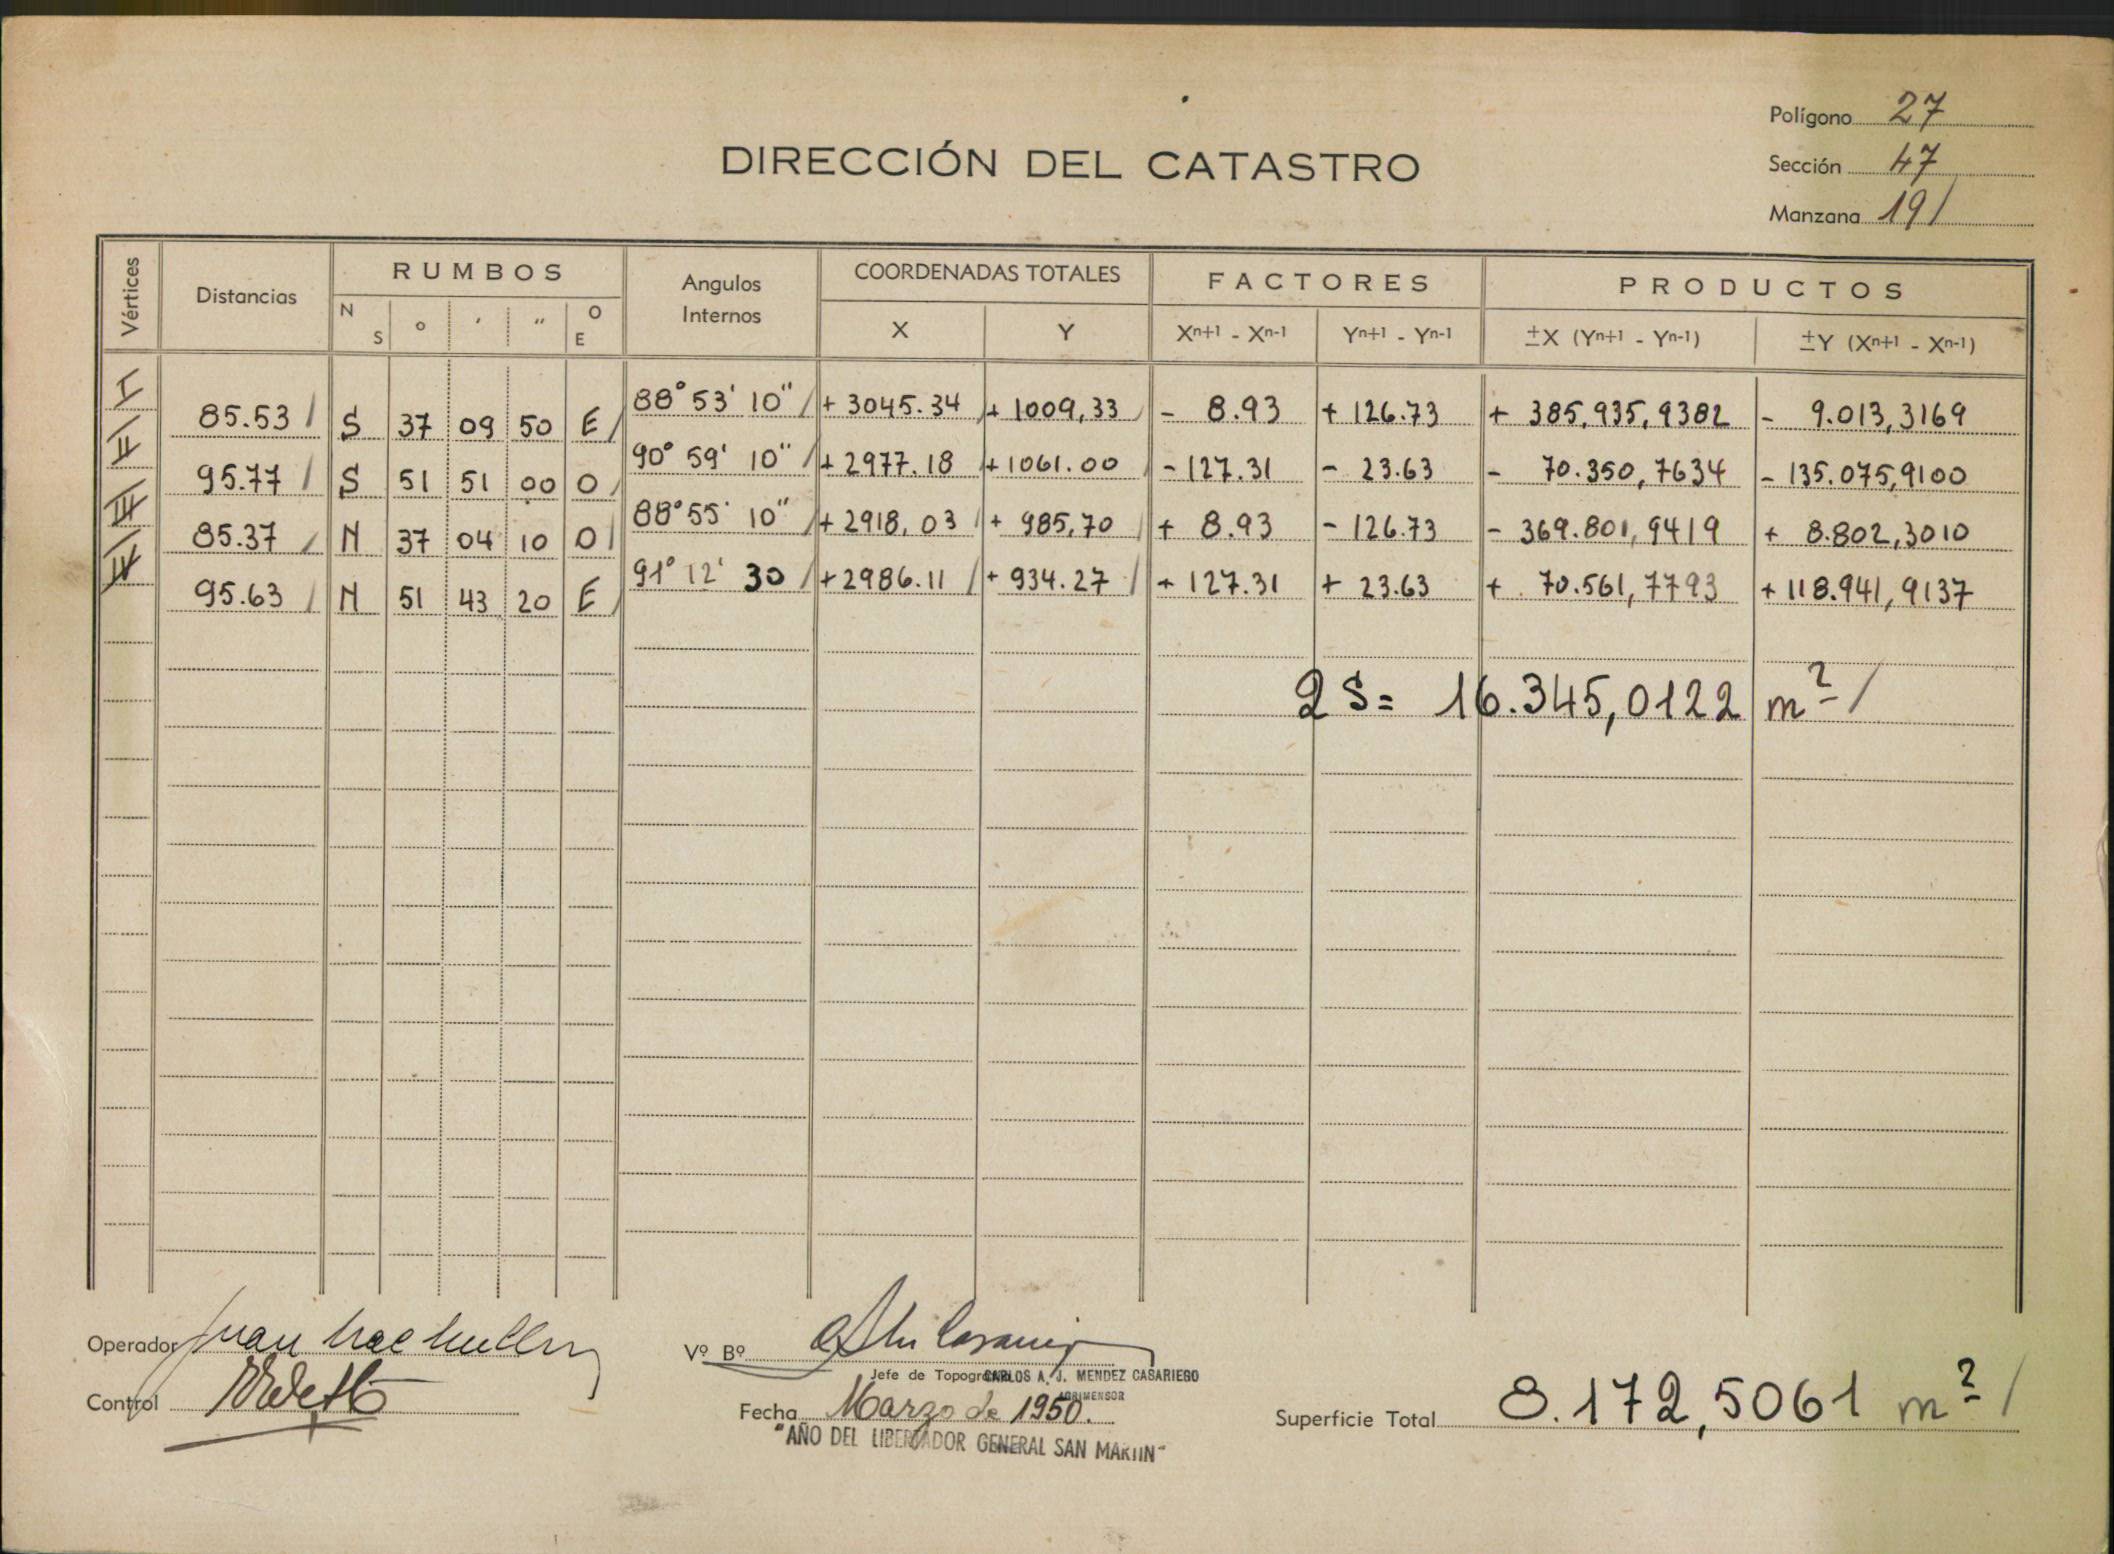 Polígono 27
DIRECCIÓN DEL CATASTRO
Sección 47
Manzana 191
Vértices Distancias RUMBOS Angulos Internos COORDENADAS TOTALES FACTORES PRODUCTOS
N S ° ' " O E X Y Xn+1 - Xn-1 Yn+1 - Yn-1 ±X (Yn+1 - Yn-1) ±Y (Xn+1 - Xn-1)
I 85.53 S 37 09 50 E 88° 53' 10" + 3045.34 + 1009,33 - 8.93 + 126.73 + 385.935,9382 - 9.013,3169
II 95.77 S 51 51 00 O 90° 59' 10" + 2977.18 + 1061.00 - 127.31 - 23.63 - 70.350,7634 - 135.075,9100
III 85.37 N 37 04 10 O 88° 55' 10" + 2918,03 + 985,70 + 8.93 - 126.73 - 369.801,9419 + 8.802,3010
IV 95.63 N 51 43 20 E 91° 12' 30 + 2986.11 + 934.27 + 127.31 + 23.63 + 70.561,7793 + 118.941,9137
2 S = 16.345,0122 m²
Operador Juan
Vº Bº
Jefe de CARLOS A. J. MENDEZ CASARIEGO
AGRIMENSOR
Control
Fecha Marzo de 1950.
Superficie Total 8.172,5061 m²
"AÑO DEL LIBERTADOR GENERAL SAN MARTIN"